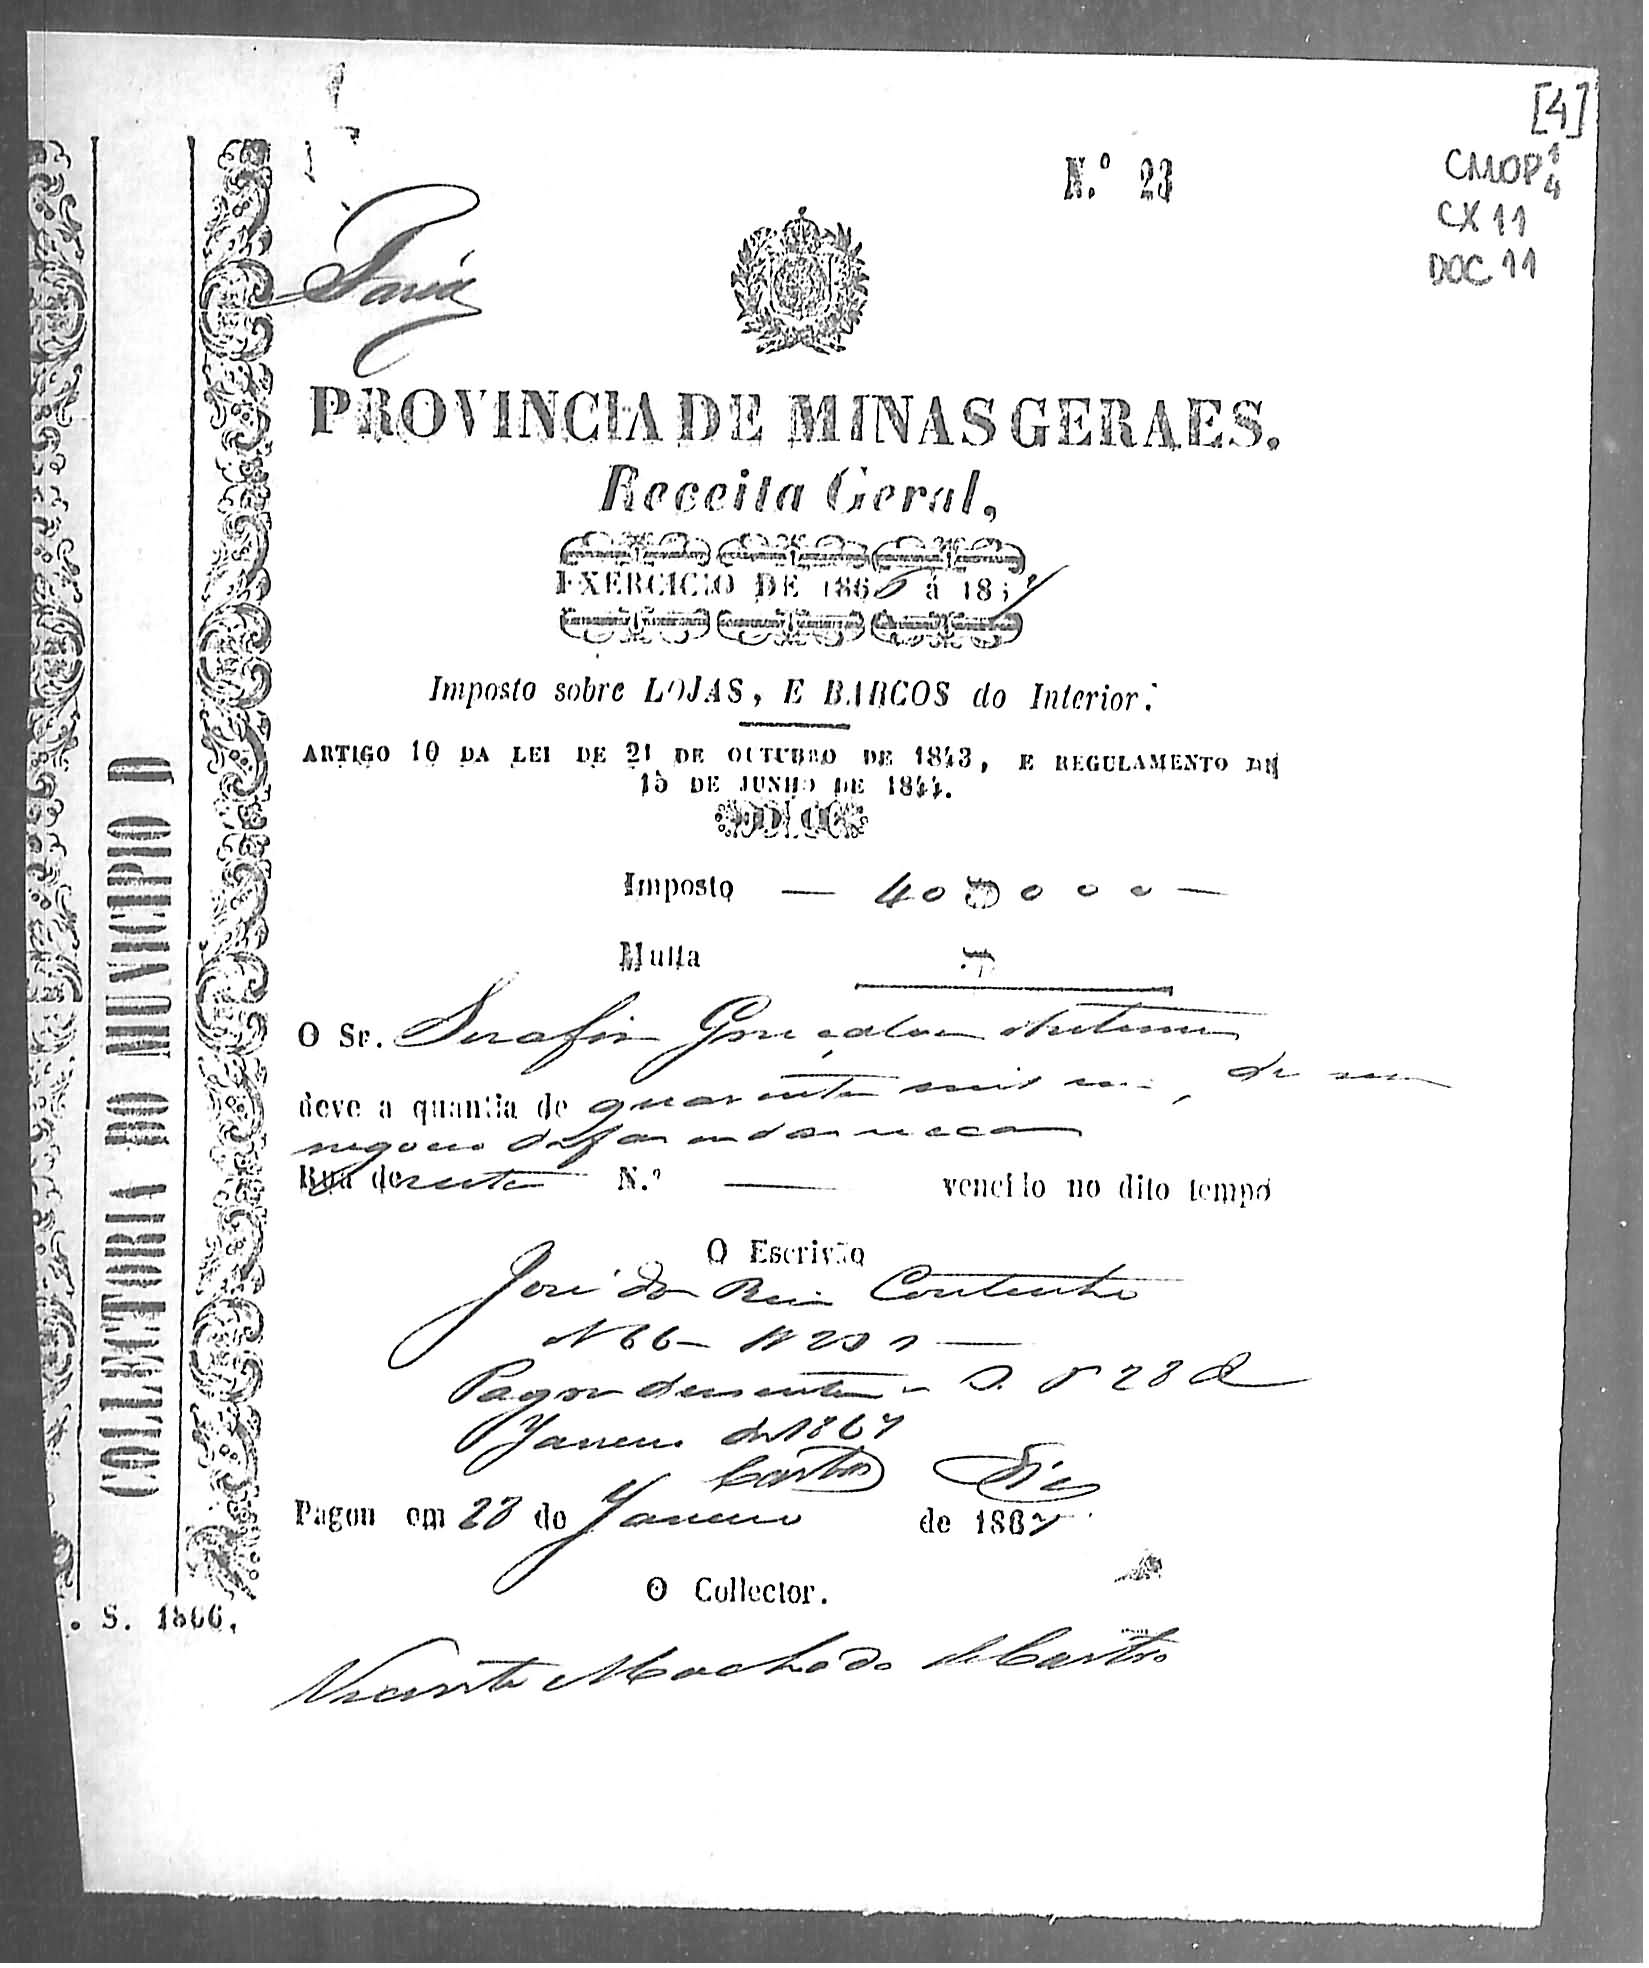 [4]
CMOP 1/4
CX 11
DOC. 11
N.º 23
PROVINCIA DE MINAS GERAES.
Receita Geral,
EXERCICIO DE 1866 á 1867
Imposto sobre LOJAS, E BARCOS do Interior.
ARTIGO 10 DA LEI DE 21 DE OUTUBRO DE 1843, E REGULAMENTO DE
15 DE JUNHO DE 1844.
Imposto — 40$000 —
Multa $
O Sr. Serafim Gonçalves Antunes
deve a quantia de quarenta mil reis, de seu
negocio de fazendas seccas
Rua de N.º — vencido no dito tempo
O Escrivão
José dos Reis Coutinho
N 66
Pagou duzentos 28 de
Janeiro de 1867
Castro Dias
Pagou em 28 de Janeiro de 1867
O Collector.
Vicente Machado de Castro
COLLECTORIA DO MUNICIPIO D
. S. 1866.